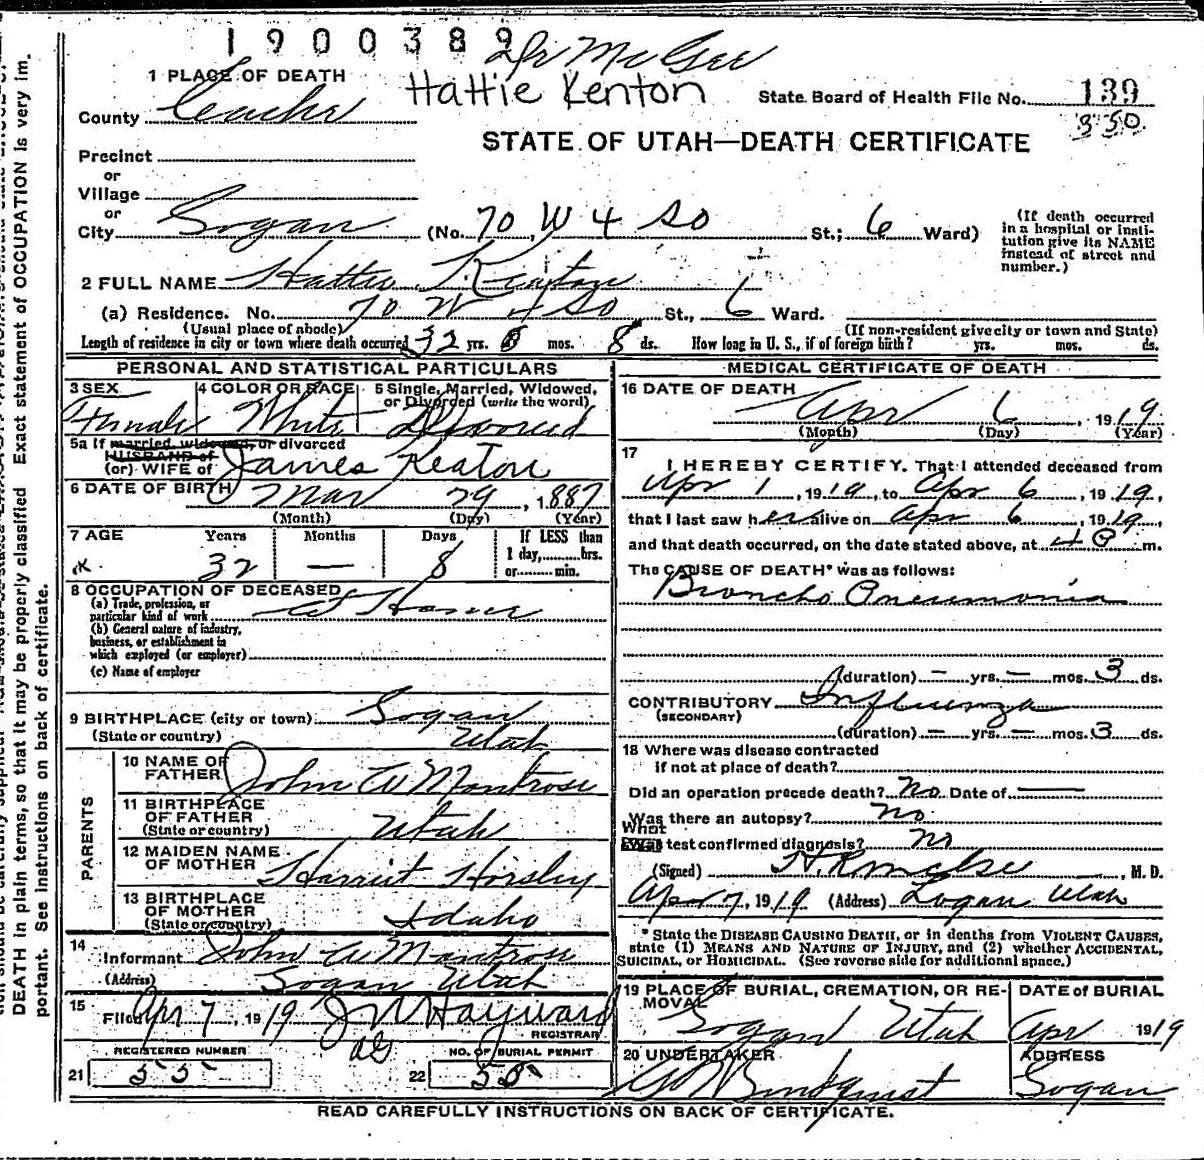 1900389
Dr McGee
Hattie Kenton
1 PLACE OF DEATH
State Board of Health File No. 139
350
County Cache
STATE OF UTAH—DEATH CERTIFICATE
Precinct
or
Village
or
City Logan (No. 70 W 4 So St.; 6 Ward)
(If death occurred in a hospital or insti-
tution give its NAME
instead of street and
number.)
2 FULL NAME Hattie Keaton
(a) Residence. No. 70 W 4 So St., 6 Ward.
(Usual place of abode) (If non-resident give city or town and State)
Length of residence in city or town where death occurred 32 yrs. mos. 8 ds. How long in U. S., if of foreign birth? yrs. mos. ds.
PERSONAL AND STATISTICAL PARTICULARS
3 SEX 4 COLOR OR RACE 5 Single, Married, Widowed,
or Divorced (write the word)
Female White Divorced
5a If married, widowed, or divorced
HUSBAND of
(or) WIFE of James Keaton
6 DATE OF BIRTH Mar 29, 1887
(Month) (Day) (Year)
7 AGE Years Months Days If LESS than
1 day,........hrs.
or.........min.
32 — 8
8 OCCUPATION OF DECEASED
(a) Trade, profession, or
particular kind of work At Home
(b) General nature of industry,
business, or establishment in
which employed (or employer)
(c) Name of employer
9 BIRTHPLACE (city or town) Logan
(State or country) Utah
PARENTS
10 NAME OF
FATHER John W Montrose
11 BIRTHPLACE
OF FATHER
(State or country) Utah
12 MAIDEN NAME
OF MOTHER Harriet Horsley
13 BIRTHPLACE
OF MOTHER
(State or country) Idaho
14
Informant John W Montrose
(Address) Logan Utah
15
Filed Apr 7, 1919 J N Hayward
REGISTRAR
REGISTERED NUMBER NO. OF BURIAL PERMIT
21 55 22 55
MEDICAL CERTIFICATE OF DEATH
16 DATE OF DEATH
Apr 6, 1919
(Month) (Day) (Year)
17
I HEREBY CERTIFY. That I attended deceased from
Apr 1, 1919, to Apr 6, 1919,
that I last saw her alive on Apr 6, 1919,
and that death occurred, on the date stated above, at 4 P m.
The CAUSE OF DEATH* was as follows:
Broncho Pneumonia
(duration) — yrs. — mos. 3 ds.
CONTRIBUTORY Influenza
(SECONDARY)
(duration) — yrs. — mos. 3 ds.
18 Where was disease contracted
if not at place of death?
Did an operation precede death? No Date of —
Was there an autopsy? No
What test confirmed diagnosis? No
(Signed) H. R McGee, M. D.
Apr 7, 1919 (Address) Logan Utah
* State the DISEASE CAUSING DEATH, or in deaths from VIOLENT CAUSES,
state (1) MEANS AND NATURE OF INJURY, and (2) whether ACCIDENTAL,
SUICIDAL, or HOMICIDAL. (See reverse side for additional space.)
19 PLACE OF BURIAL, CREMATION, OR RE-
MOVAL
DATE of BURIAL
Logan Utah Apr 1919
20 UNDERTAKER ADDRESS
Lindquist Logan
READ CAREFULLY INSTRUCTIONS ON BACK OF CERTIFICATE.
DEATH in plain terms, so that it may be properly classified. Exact statement of OCCUPATION is very im-
portant. See instructions on back of certificate.